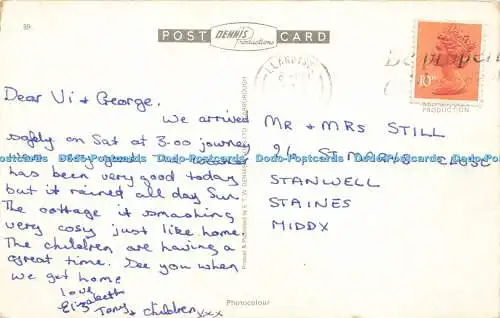 POST CARD
DENNIS
Productions
Dear Vi & George.
We arrived
safely on Sat at 3.00 journey
has been very good today
but it rained all day Sun
The cottage it smashing
very cosy just like home.
The children are having a
great time. See you when
we get home
love
Elizabeth
Tony & children xxx
LLANDUDNO
Be properly
10P
MR & MRS STILL
94 ST MARYS CLOSE
STANWELL
STAINES
MIDDX
Printed & Published by E. T. W. DENNIS LTD SCARBOROUGH
Photocolour
Dodo-Postcards Dodo-Postcards Dodo-Postcards Dodo-Postcards Dodo-Postcards